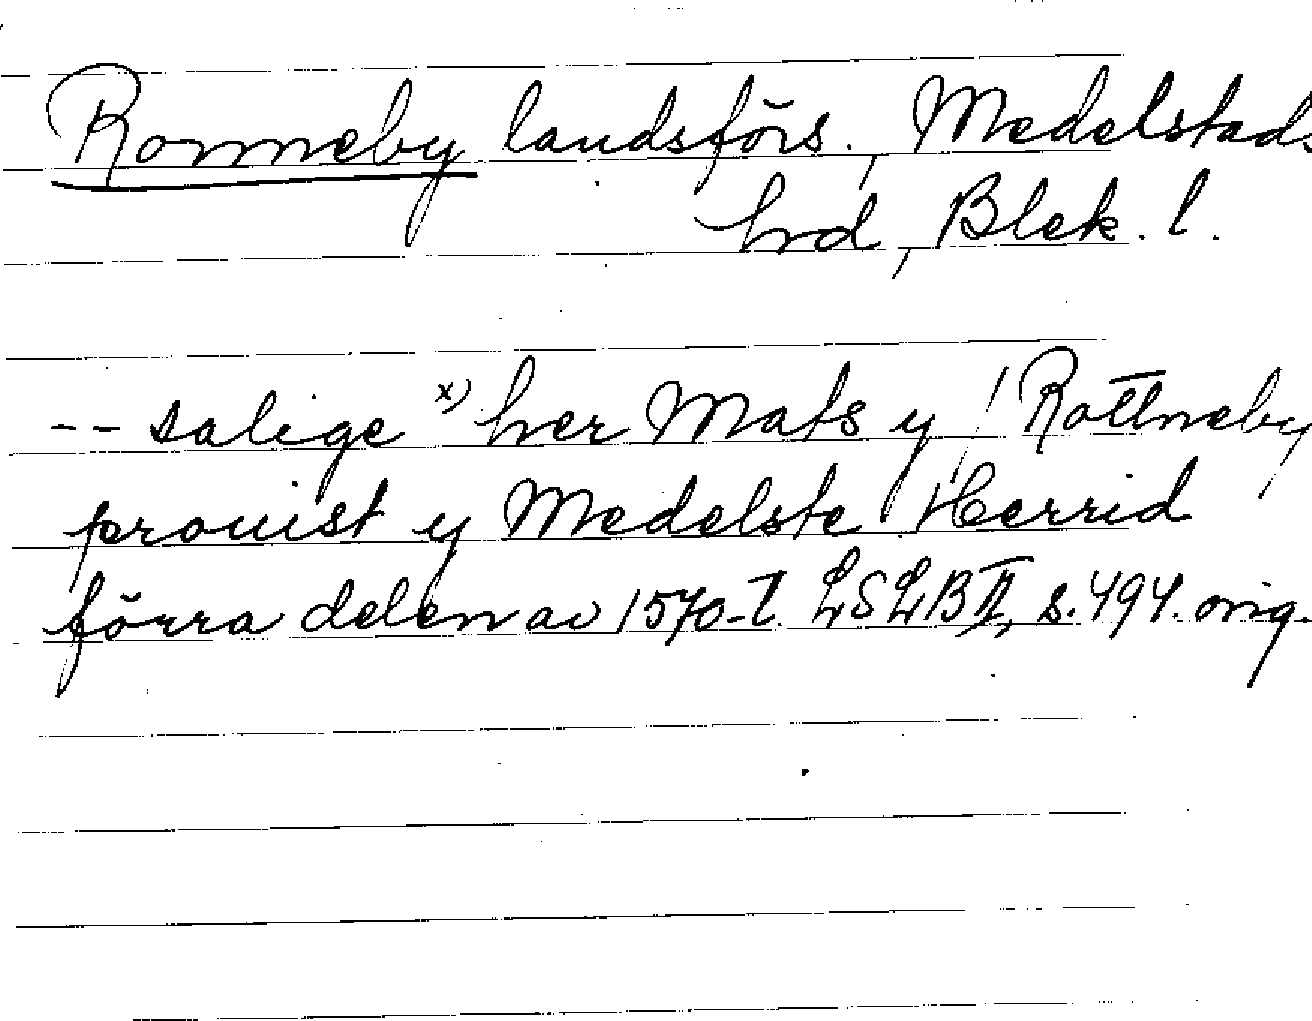 Ronneby landsförs., Medelstads
hrd, Blek. l.
-- salige x) her Mats y / Rottneby
prouist y Medelste Herrid
förra delen av 1570-t. LSLB II, s. 494. orig.